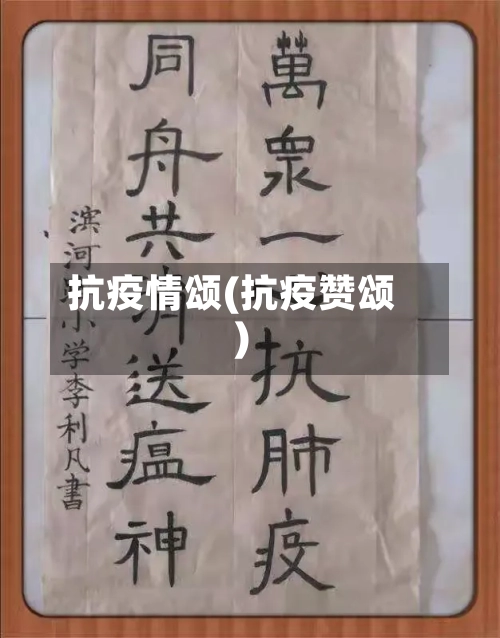 萬衆一心抗肺疫
同舟共济送瘟神
滨河小学李利凡書
抗疫情颂(抗疫赞颂
)